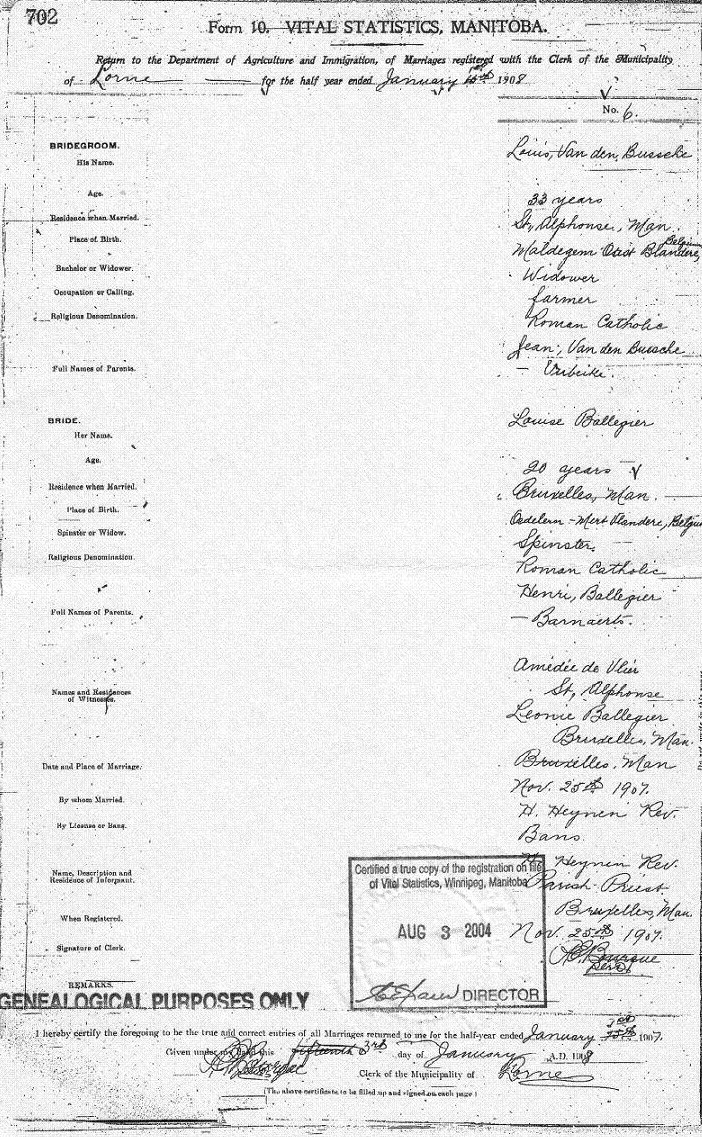 702
Form 10. VITAL STATISTICS, MANITOBA.
Return to the Department of Agriculture and Immigration, of Marriages registered with the Clerk of the Municipality
of Lorne for the half year ended January 1908
No. 6.
BRIDEGROOM.
His Name. Louis, Van den, Bussche
Age. 33 years
Residence when Married. St, Alphonse, Man
Place of Birth. Maldegem Oost Blandere, Belgium
Bachelor or Widower. Widower
Occupation or Calling. farmer
Religious Denomination. Roman Catholic
Jean, Van den Bussche
Full Names of Parents. — Vribeike.
BRIDE.
Her Name. Louise Ballegier
Age. 20 years
Residence when Married. Bruxelles, Man.
Place of Birth. Oedelem - Mert Vlandere, Belgium
Spinster or Widow. Spinster.
Religious Denomination. Roman Catholic
Henri, Ballegier
Full Names of Parents. — Barnaerts.
Amédée de Vlier
Names and Residences St, Alphonse
of Witnesses. Leonie Ballegier
Bruxelles, Man.
Date and Place of Marriage. Bruxelles, Man
Nov. 25th 1907.
By whom Married. H. Heynen Rev.
By License or Bans. Bans
Name, Description and H. Heynen Rev.
Residence of Informant. Parish Priest
Bruxelles, Man.
When Registered. Nov. 25th 1907.
Signature of Clerk.
REMARKS.
Certified a true copy of the registration on file
of Vital Statistics, Winnipeg, Manitoba
AUG 3 2004
DIRECTOR
GENEALOGICAL PURPOSES ONLY
I hereby certify the foregoing to be the true and correct entries of all Marriages returned to me for the half-year ended January 1907.
Given under my hand this fifteenth 3rd day of January A.D. 1908
Clerk of the Municipality of Lorne
(The above certificate to be filled up and signed on each page)